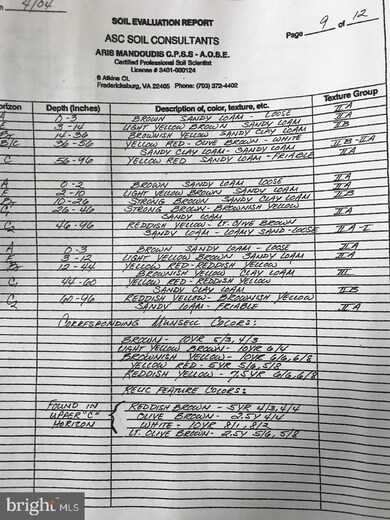 4/04
SOIL EVALUATION REPORT
Page 9 of 12
ASC SOIL CONSULTANTS
ARIS MANDOUDIS C.P.S.S - A.O.S.E.
Certified Professional Soil Scientist
License # 3401-000124
6 Atkins Ct.
Fredericksburg, VA 22405 Phone: (703) 372-4402
orizon Depth (inches) Description of, color, texture, etc. Texture Group
A 0-3 BROWN SANDY LOAM - LOOSE IIA
E 3-14 LIGHT YELLOW BROWN SANDY LOAM IIA
Bt 14-36 BROWNISH YELLOW SANDY CLAY LOAM IIB
B/C 36-56 YELLOW RED - OLIVE BROWN - WHITE IIB-IIA
SANDY CLAY LOAM - SANDY LOAM
C 56-96 YELLOW RED SANDY LOAM - FRIABLE IIA
A 0-2 BROWN SANDY LOAM LOOSE IIA
E 2-10 LIGHT YELLOW BROWN SANDY LOAM IIA
Bt 10-26 STRONG BROWN SANDY CLAY LOAM IIB
C1 26-46 STRONG BROWN - BROWNISH YELLOW
SANDY LOAM IIA
C2 46-96 REDDISH YELLOW - LT. OLIVE BROWN
SANDY LOAM - LOAMY SAND - LOOSE IIA-I
A 0-3 BROWN SANDY LOAM - LOOSE IIA
E 3-12 LIGHT YELLOW BROWN SANDY LOAM IIA
Bt 12-44 YELLOW RED - REDDISH YELLOW
BROWNISH YELLOW CLAY LOAM III
C1 44-60 YELLOW RED - REDDISH YELLOW
SANDY CLAY LOAM IIB
C2 60-96 REDDISH YELLOW - BROWNISH YELLOW
SANDY LOAM - FRIABLE IIA
CORRESPONDING MUNSELL COLORS:
BROWN - 10YR 5/3, 4/3
LIGHT YELLOW BROWN - 10YR 6/4
BROWNISH YELLOW - 10YR 6/6, 6/8
YELLOW RED - 5YR 5/6, 5/8
REDDISH YELLOW - 7.5YR 6/6, 6/8
RELIC FEATURE COLORS:
FOUND IN REDDISH BROWN - 5YR 4/3, 4/4
UPPER "C" OLIVE BROWN - 2.5Y 4/4
HORIZON WHITE - 10YR 8/1, 8/2
LT. OLIVE BROWN - 2.5Y 5/6, 5/8
bright MLS